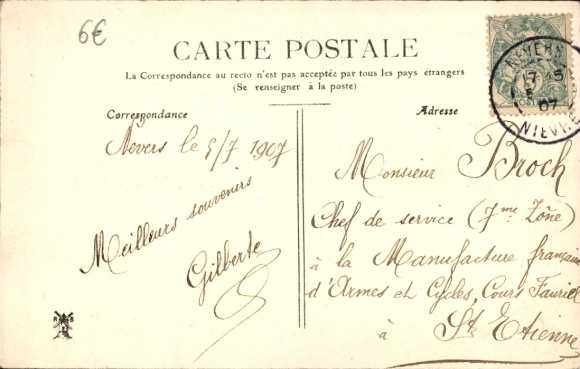 6€
CARTE POSTALE
La Correspondance au recto n'est pas acceptée par tous les pays étrangers
(Se renseigner à la poste)
Correspondance
Nevers le 5/7 1907
Meilleurs souvenirs
Gilberte
Adresse
Monsieur Broch
Chef de service (7me Zône)
à la Manufacture française
d'Armes et Cycles, Cours Fauriel
à St Etienne
NEVERS
17 45
5
07
NIEVRE